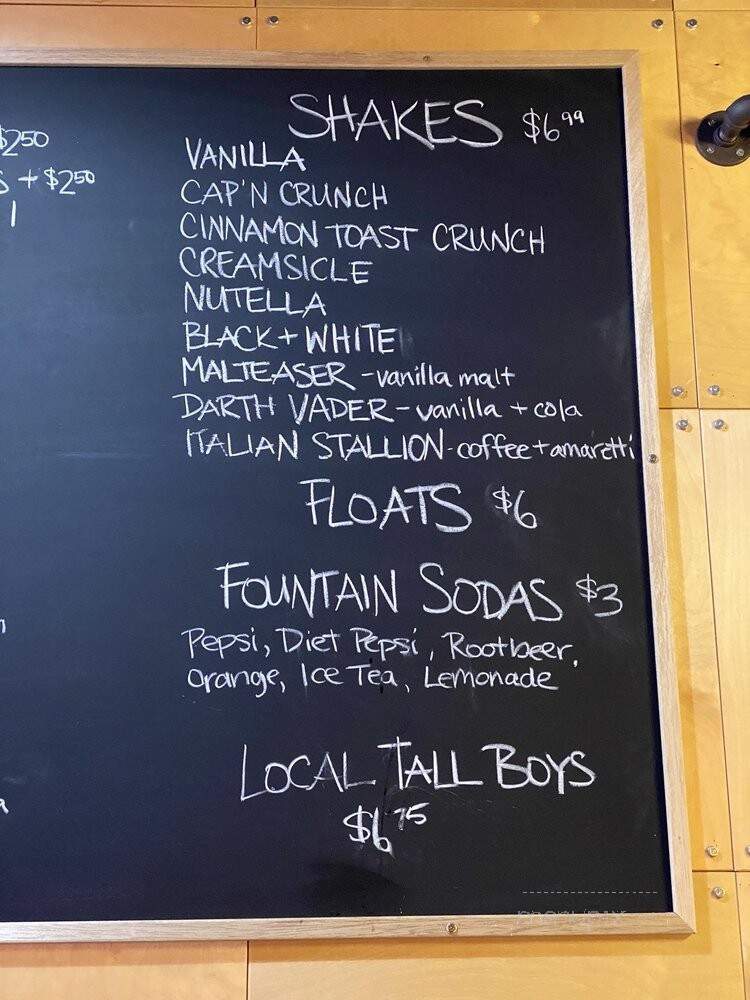 $2.50
s + $2.50
SHAKES $6.99
VANILLA
CAP'N CRUNCH
CINNAMON TOAST CRUNCH
CREAMSICLE
NUTELLA
BLACK + WHITE
MALTEASER - vanilla malt
DARTH VADER - vanilla + cola
ITALIAN STALLION - coffee + amaretti
FLOATS $6
FOUNTAIN SODAS $3
Pepsi, Diet Pepsi, Rootbeer,
Orange, Ice Tea, Lemonade
LOCAL TALL BOYS
$6.75